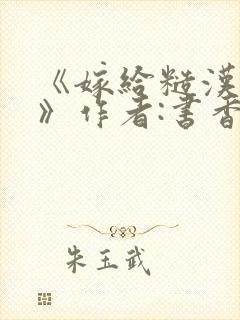 《嫁给糙汉
》作者:书香
朱玉武